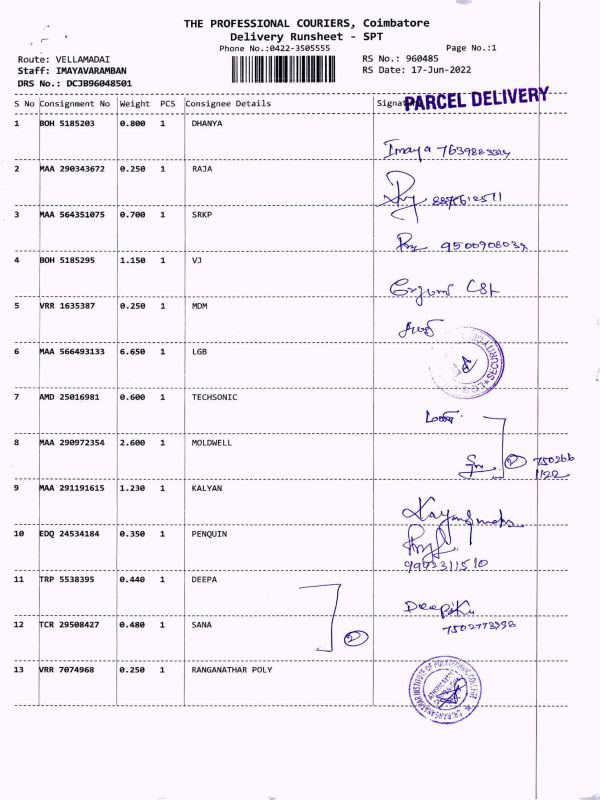 THE PROFESSIONAL COURIERS, Coimbatore
Delivery Runsheet - SPT
Phone No.:0422-3505555 Page No.:1
Route: VELLAMADAI RS No.: 960485
Staff: IMAYAVARAMBAN RS Date: 17-Jun-2022
DRS No.: DCJB96048501
PARCEL DELIVERY
S No Consignment No Weight PCS Consignee Details
1 BOH 5185203 0.800 1 DHANYA
Imaya
2 MAA 290343672 0.250 1 RAJA
3 MAA 564351075 0.700 1 SRKP
9500908032
4 BOH 5185295 1.150 1 VJ
5 VRR 1635387 0.250 1 MDM
6 MAA 566493133 6.650 1 LGB
SECURITY
7 AMD 25016981 0.600 1 TECHSONIC
8 MAA 290972354 2.600 1 MOLDWELL
2 750266
1122
9 MAA 291191615 1.230 1 KALYAN
10 EDQ 24534184 0.350 1 PENQUIN
11 TRP 5538395 0.440 1 DEEPA
Deepika
12 TCR 29508427 0.480 1 SANA
2
13 VRR 7074968 0.250 1 RANGANATHAR POLY